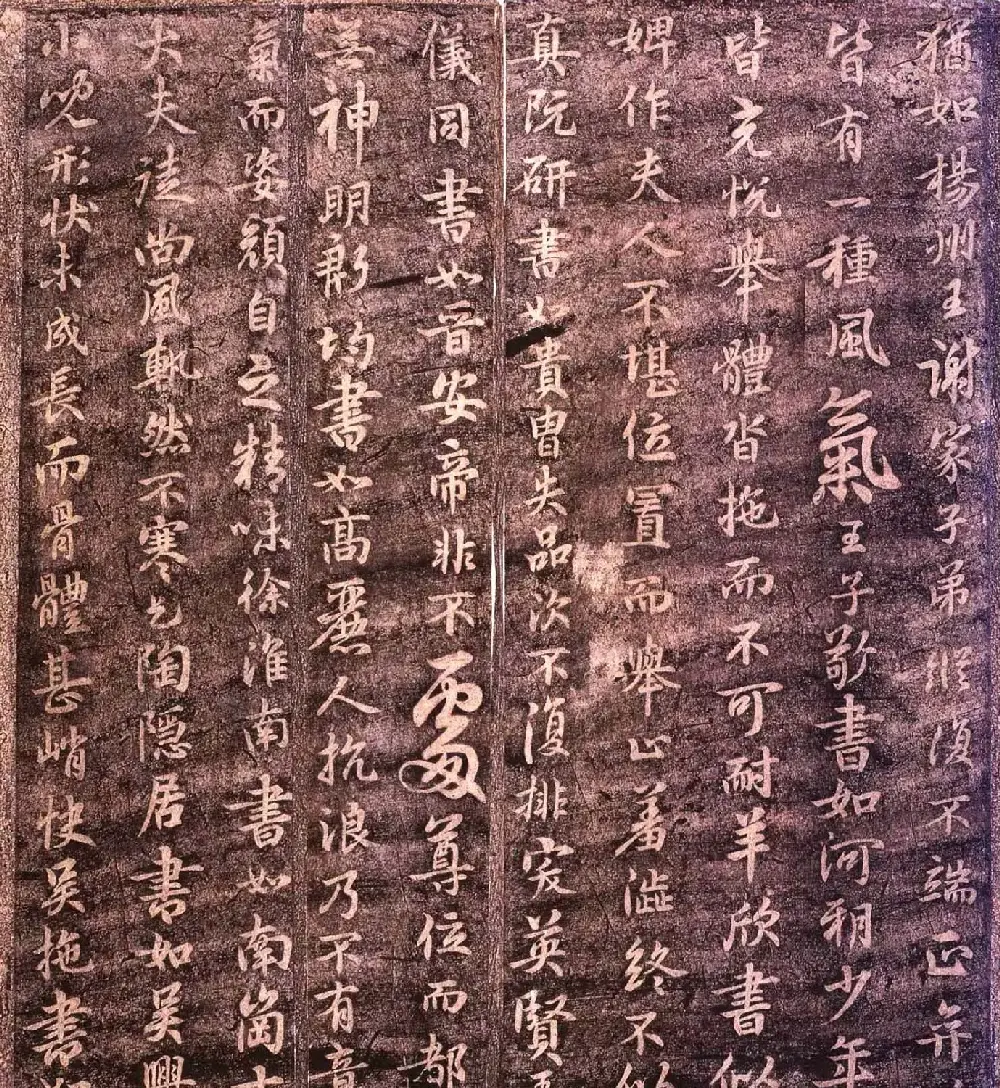 猶如楊州王謝家子弟縱復不端正奕
皆有一種風氣王子敬書如河朔少年
皆充悅舉體沓拖而不可耐羊欣書似
婢作夫人不堪位置而舉止羞澁終不似
真阮研書如貴胄失品次不復排突英賢
儀同書如晉安帝非不處尊位而都
無神明 均書如高麗人抗浪乃不有意
氣而姿顏自乏精味徐淮南書如南崗士
大夫徒尚風軌然不寒乞陶隱居書如吳興
小兒形狀未成長而骨體甚峭快吳拖書